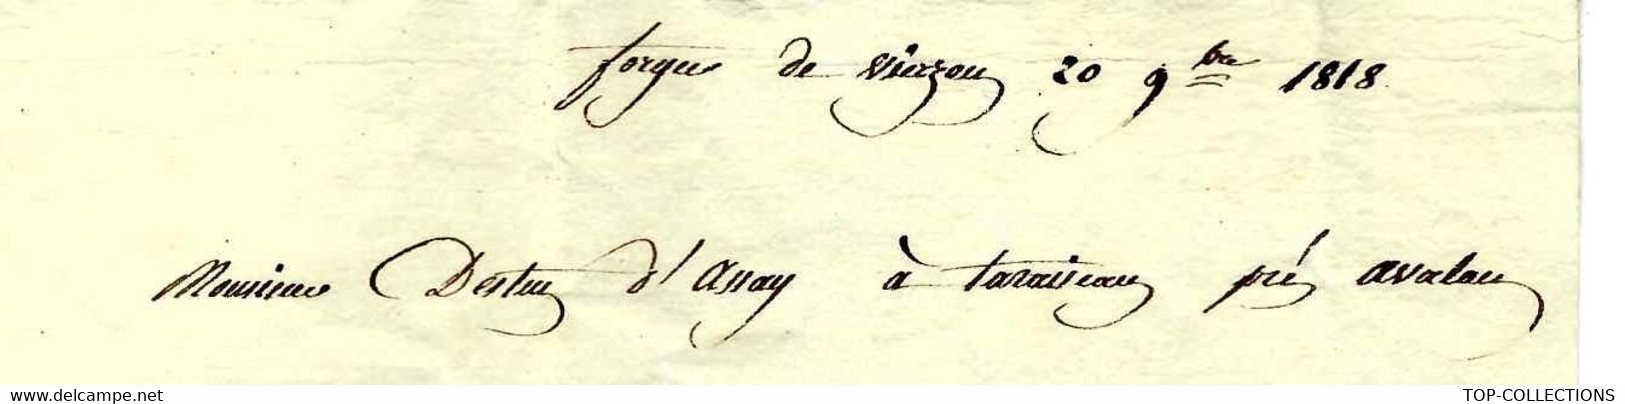 forges de vierzon 20 9bre 1818
Monsieur Destut d'assay à taraiseau prés avalon
www.delcampe.net
TOP-COLLECTIONS